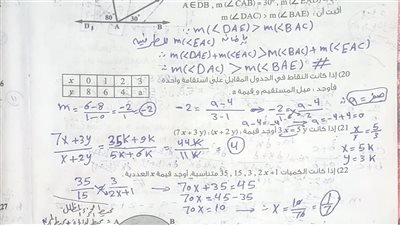 A∈DB , m(∠CAB) = 30° , m(∠EAD)
80 30
D A B
أثبت أن : m(∠DAC) > m(∠BAE)
∵ m(∠DAE) > m(∠BAC)
m(∠EAC)
∴ m(∠DAE)+m(∠EAC) > m(∠BAC) + m(∠EAC)
∴ m(∠DAC) > m(∠BAE) #
20) إذا كانت النقاط في الجدول المقابل على استقامة واحدة
x 0 1 2 4 3
y 8 6 4 a
فأوجد ، ميل المستقيم و قيمة a
m = 6-8/1-0 = -2/1 = -2
-2 = a-4/3-1 → -2 = a-4/2
a-4=-4
a=-4+4=0
21) إذا كانت 3 x = 5 y أوجد قيمة : (7 x + 3 y) : (x + 2 y)
x/y = 5/3
x = 5k
y = 3k
7x+3y/x+2y = 35k+9k/5k+6k = 44k/11k = 4
22) إذا كانت الكميات 2x+1 , 3 , 15 , 35 متناسبة، أوجد قيمة x العددية
35/15 = 3/2x+1 → 70x+35=45
70x=45-35
70x=10 → ∴ x = 10/70 = 1/7
A B
27